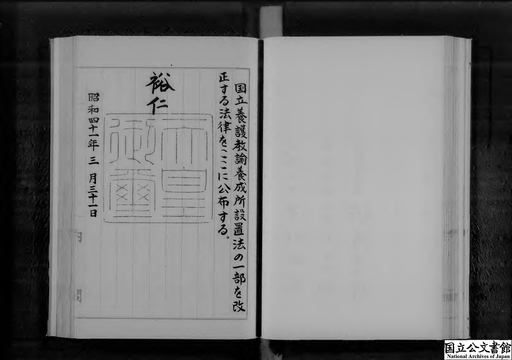 国立養護教諭養成所設置法の一部を改
正する法律をここに公布する。
裕仁
天皇
御璽
昭和四十一年三月三十一日
国立公文書館
National Archives of Japan